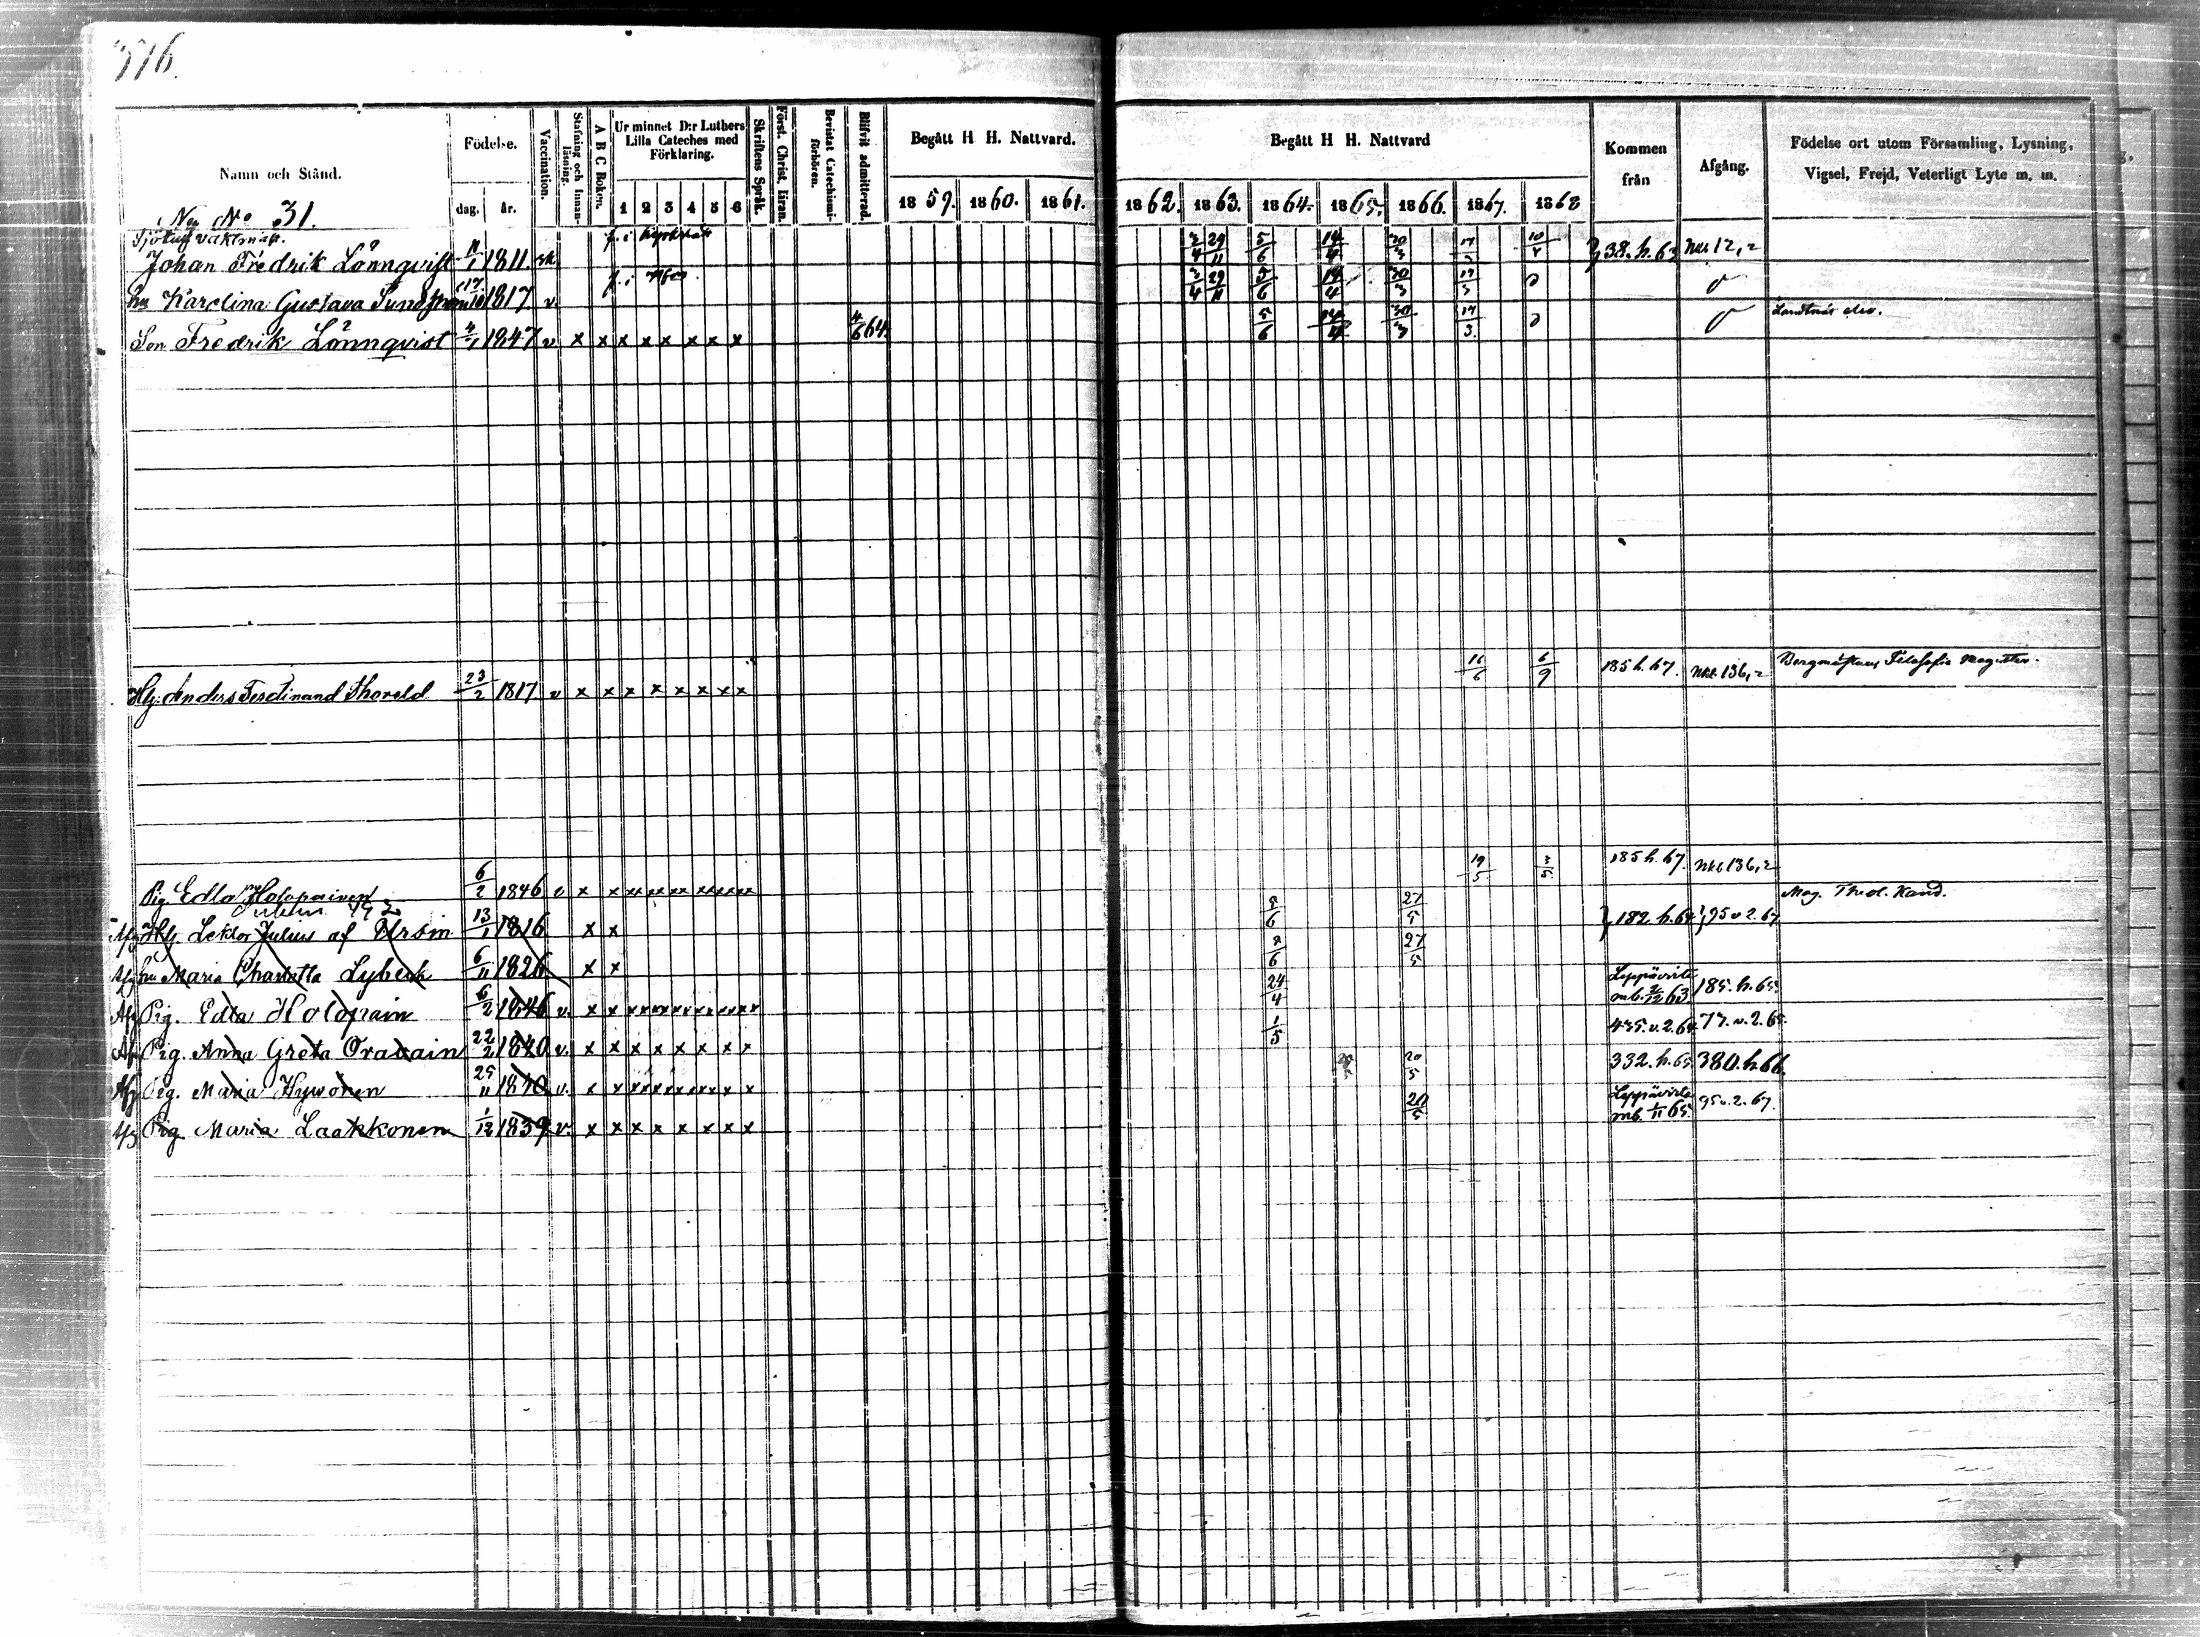 576.
Namn och Stånd.
Födelse.
dag.
år.
Vaccination.
Stafning och Innanläsning.
A B C Boken.
Ur minnet D:r Luthers Lilla Cateches med Förklaring.
1 2 3 4 5 6
Skriftens Språk.
Först. Christ. läran.
Bevistat Catechismiförhören.
Blifvit admitterad.
Begått H H. Nattvard.
1859. 1860. 1861.
Begått H H. Nattvard
1862. 1863. 1864. 1865. 1866. 1867. 1868
Kommen från
Afgång.
Födelse ort utom Församling, Lysning, Vigsel, Frejd, Veterligt Lyte m. m.
No 31.
Johan Fredrik Lönnqvist 1811. 2/4 29/11 5/6 14/4 30/3 17/3 10/4 38. h. 63
hu Karolina Gustava Sundström 1817. v 2/4 29/11 5/6 14/4 30/3 17/3
Son Fredrik Lönnqvist 4/1 1847 v x x x x x x x x 4/6 64. 5/6 14/4 30/3 17/3
Anders Ferdinand Thoreld 23/2 1817. v x x x x x x x x 16/6 6/9 185 h. 67. 136,2 Filosofie Magister.
Pig. Edla Holopainen 6/2 1846 v x x x x x x x x 19/5 185 h. 67. 136,2
Afg Lektor Julius af Ursin 13/1 1816 x x 27/5 182. h. 64 95 v 2. 67 Mag. Theol. Kand.
Afg hu Maria Charlotta Lybeck 6/11 1826 x x 27/5
Afg Pig. Edla Holopain 6/2 1846 v. x x x x x x x x 24/4 Leppävirta mb. 2/12 63 185. h. 65
Af Pig. Anna Greta Oravain 22/2 1840 v. x x x x x x x x 1/5 435. v. 2. 64 77. v. 2. 65.
Afg Pig. Maria Hyvönen 25/11 1840 v. x x x x x x x x 20/5 332. h. 65 380. h. 66.
Afg Pig Maria Laakkonen 1/12 1839 v. x x x x x x x x 20/5 Leppävirta mb. 1/11 65 95 v. 2. 67.